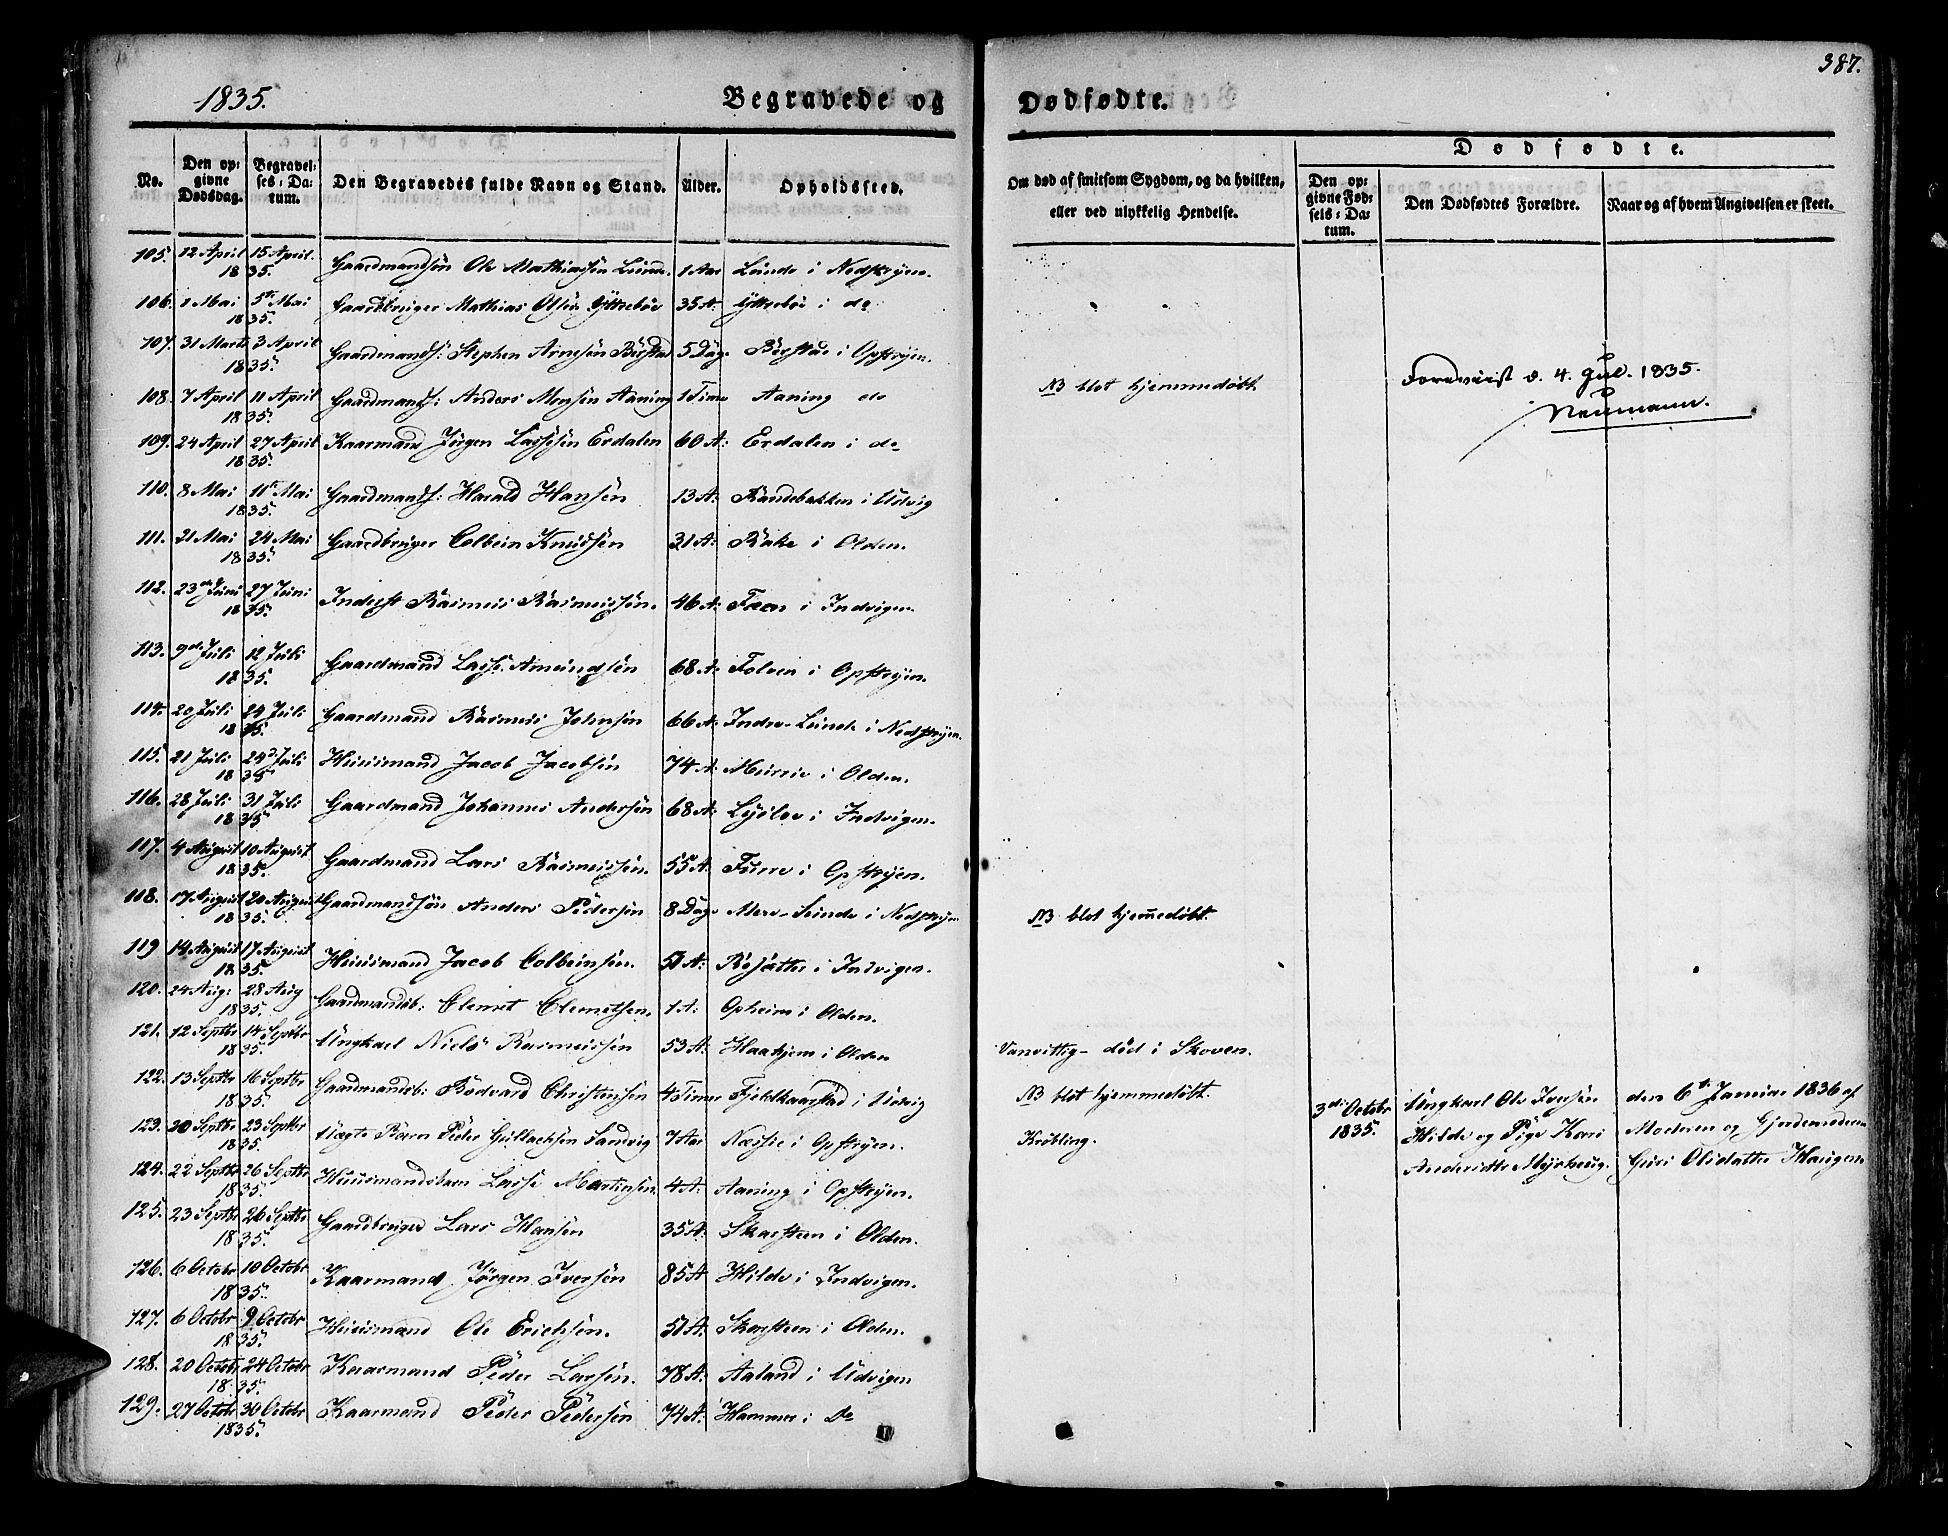 387.
1835. Begravede og Dødfødte.
No. Den opgivne Dødsdag. Begravelses-Datum. Den Begravedes fulde Navn og Stand. Alder. Opholdssted. Om død af smitsom Sygdom, og da hvilken, eller ved ulykkelig Hendelse.
Dødfødte.
Den opgivne Fødsels-Datum. Den Dødfødtes Forældre. Naar og af hvem Angivelsen er skeet.
105. 12 April 15 April 1835. Gaardmandsøn Ole Mathiassøn Lunde. 1 Aar Lunde i Nedstryen.
106. 1 Mai 5te Mai 1835. Gaardbruger Mathias Olsøn Yttrebøe 35 A: Yttrebøe i do
107. 31 Marts 3 April 1835. Gaardmands: Stephen Arnesøn Berstad 5 Dage Berstad i Opstryen.
108. 7 April 11 April 1835. Gaardmands: Anders Monsøn Aaning 1 Time Aaning do NB blot hjemmedøbt.
Foreviist d. 4. Jul. 1835.
Neumann.
109. 24 April 27 April 1835. Kaarmand Jørgen Lassesøn Erdalen 60 A: Erdalen i do
110. 8 Mai 11te Mai 1835. Gaardmands: Harald Hansøn 13 A: Sandebakken i Udvig
111. 21 Mai 24 Mai 1835. Gaardbruger Colbein Knudsøn 31 A: Rake i Olden.
112. 23de Juni 27 Juni 1835. Inderst Rasmus Rasmussøn. 46 A: Faen i Indvigen
113. 9de Juli 12 Juli 1835. Gaardmand Lasse Amundsøn 68 A: Folven i Opstryen.
114. 20 Juli 24 Juli 1835. Gaardmand Rasmus Johnsøn 66 A: Indre-Lunde i Nedstryen.
115. 21 Juli 24d Juli 1835 Huusmand Jacob Jacobsøn 74 A: Murrie i Olden.
116. 28 Juli 31 Juli 1835 Gaardmand Johannes Andersøn 68 A: i Indvigen.
117. 4 August 10 August 1835. Gaardmand Lars Rasmussøn. 55 A: Furre i Opstryen.
118. 17 August 20 August 1835. Gaardmandsøn Anders Pedersøn 8 Dage i Nedstryen NB blot hjemmedøbt.
119 14 August 17 August 1835. Huusmand Jacob Colbeinsøn. 51 A: i Indvigen.
120. 24 Aug: 28 Aug 1835. Gaardmandsb: Clemet Clemetsen. 1 A: Opheim i Olden.
121. 12 Septbr 14 Septbr 1835. Ungkael Niels Rasmussøn 53 A: Haahjem i Olden Vanvittig – død i Skoven.
122. 13 Septbr 16 Septbr 1835. Gaardmandsb: Bodvard Christensøn 4 Timer Fjeldkaarstad i Udvig NB blot hjemmedøbt.
3die Octobr 1835. Ungkarl Ole Iversøn Hilde og Pige Kari Andersdtr Myrhaug. den 6te Januar 1836 af Moderen og Gjordemoderen Guri Olsdatter Haugen
123. 20 Septbr 23 Septbr 1835 Uægte Barn Peder Gullachsøn Sandvig 7 Aar Næssie i Opstryen. Krøbling.
124. 22 Septbr 26 Septbr 1835. Huusmandsbarn Lasse Martinsøn. 4 A: Aaning i Opstryen.
125. 23 Septbr 26 Septbr 1835. Gaardbruger Lars Hansøn 35 A: Skarsteen i Olden.
126. 6 Octobr 10 Octobr 1835. Kaarmand Jørgen Iversøn 85 A Hilde i Indvigen.
127. 6 Octobr 9 Octobr 1835. Huusmand Ole Erichsøn. 51 A: Skarsteen i Olden.
128. 20 Octobr 24 Octobr 1835. Kaarmand Peder Larsøn. 78 A: Aaland i Udvigen
129. 27 Octobr 30 Octobr 1835. Kaarmand Peder Pedersøn 74 A: Hammer i Do